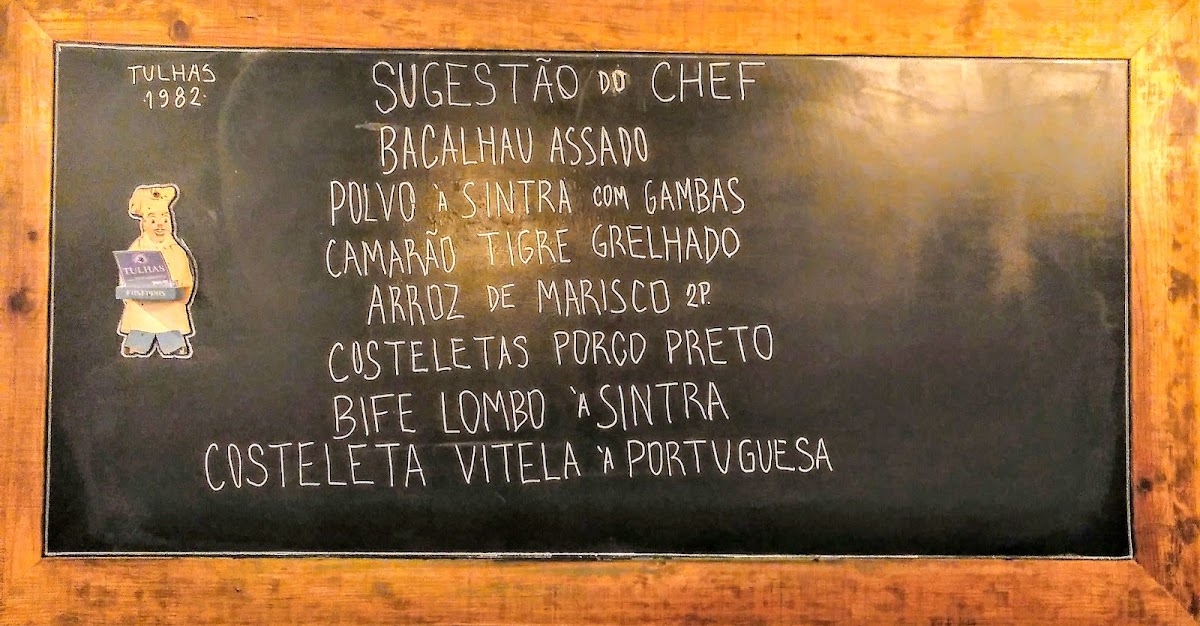 TULHAS
·1982·
SUGESTÃO DO CHEF
BACALHAU ASSADO
POLVO À SINTRA COM GAMBAS
CAMARÃO TIGRE GRELHADO
ARROZ DE MARISCO 2P.
COSTELETAS PORCO PRETO
BIFE LOMBO À SINTRA
COSTELETA VITELA À PORTUGUESA
TULHAS